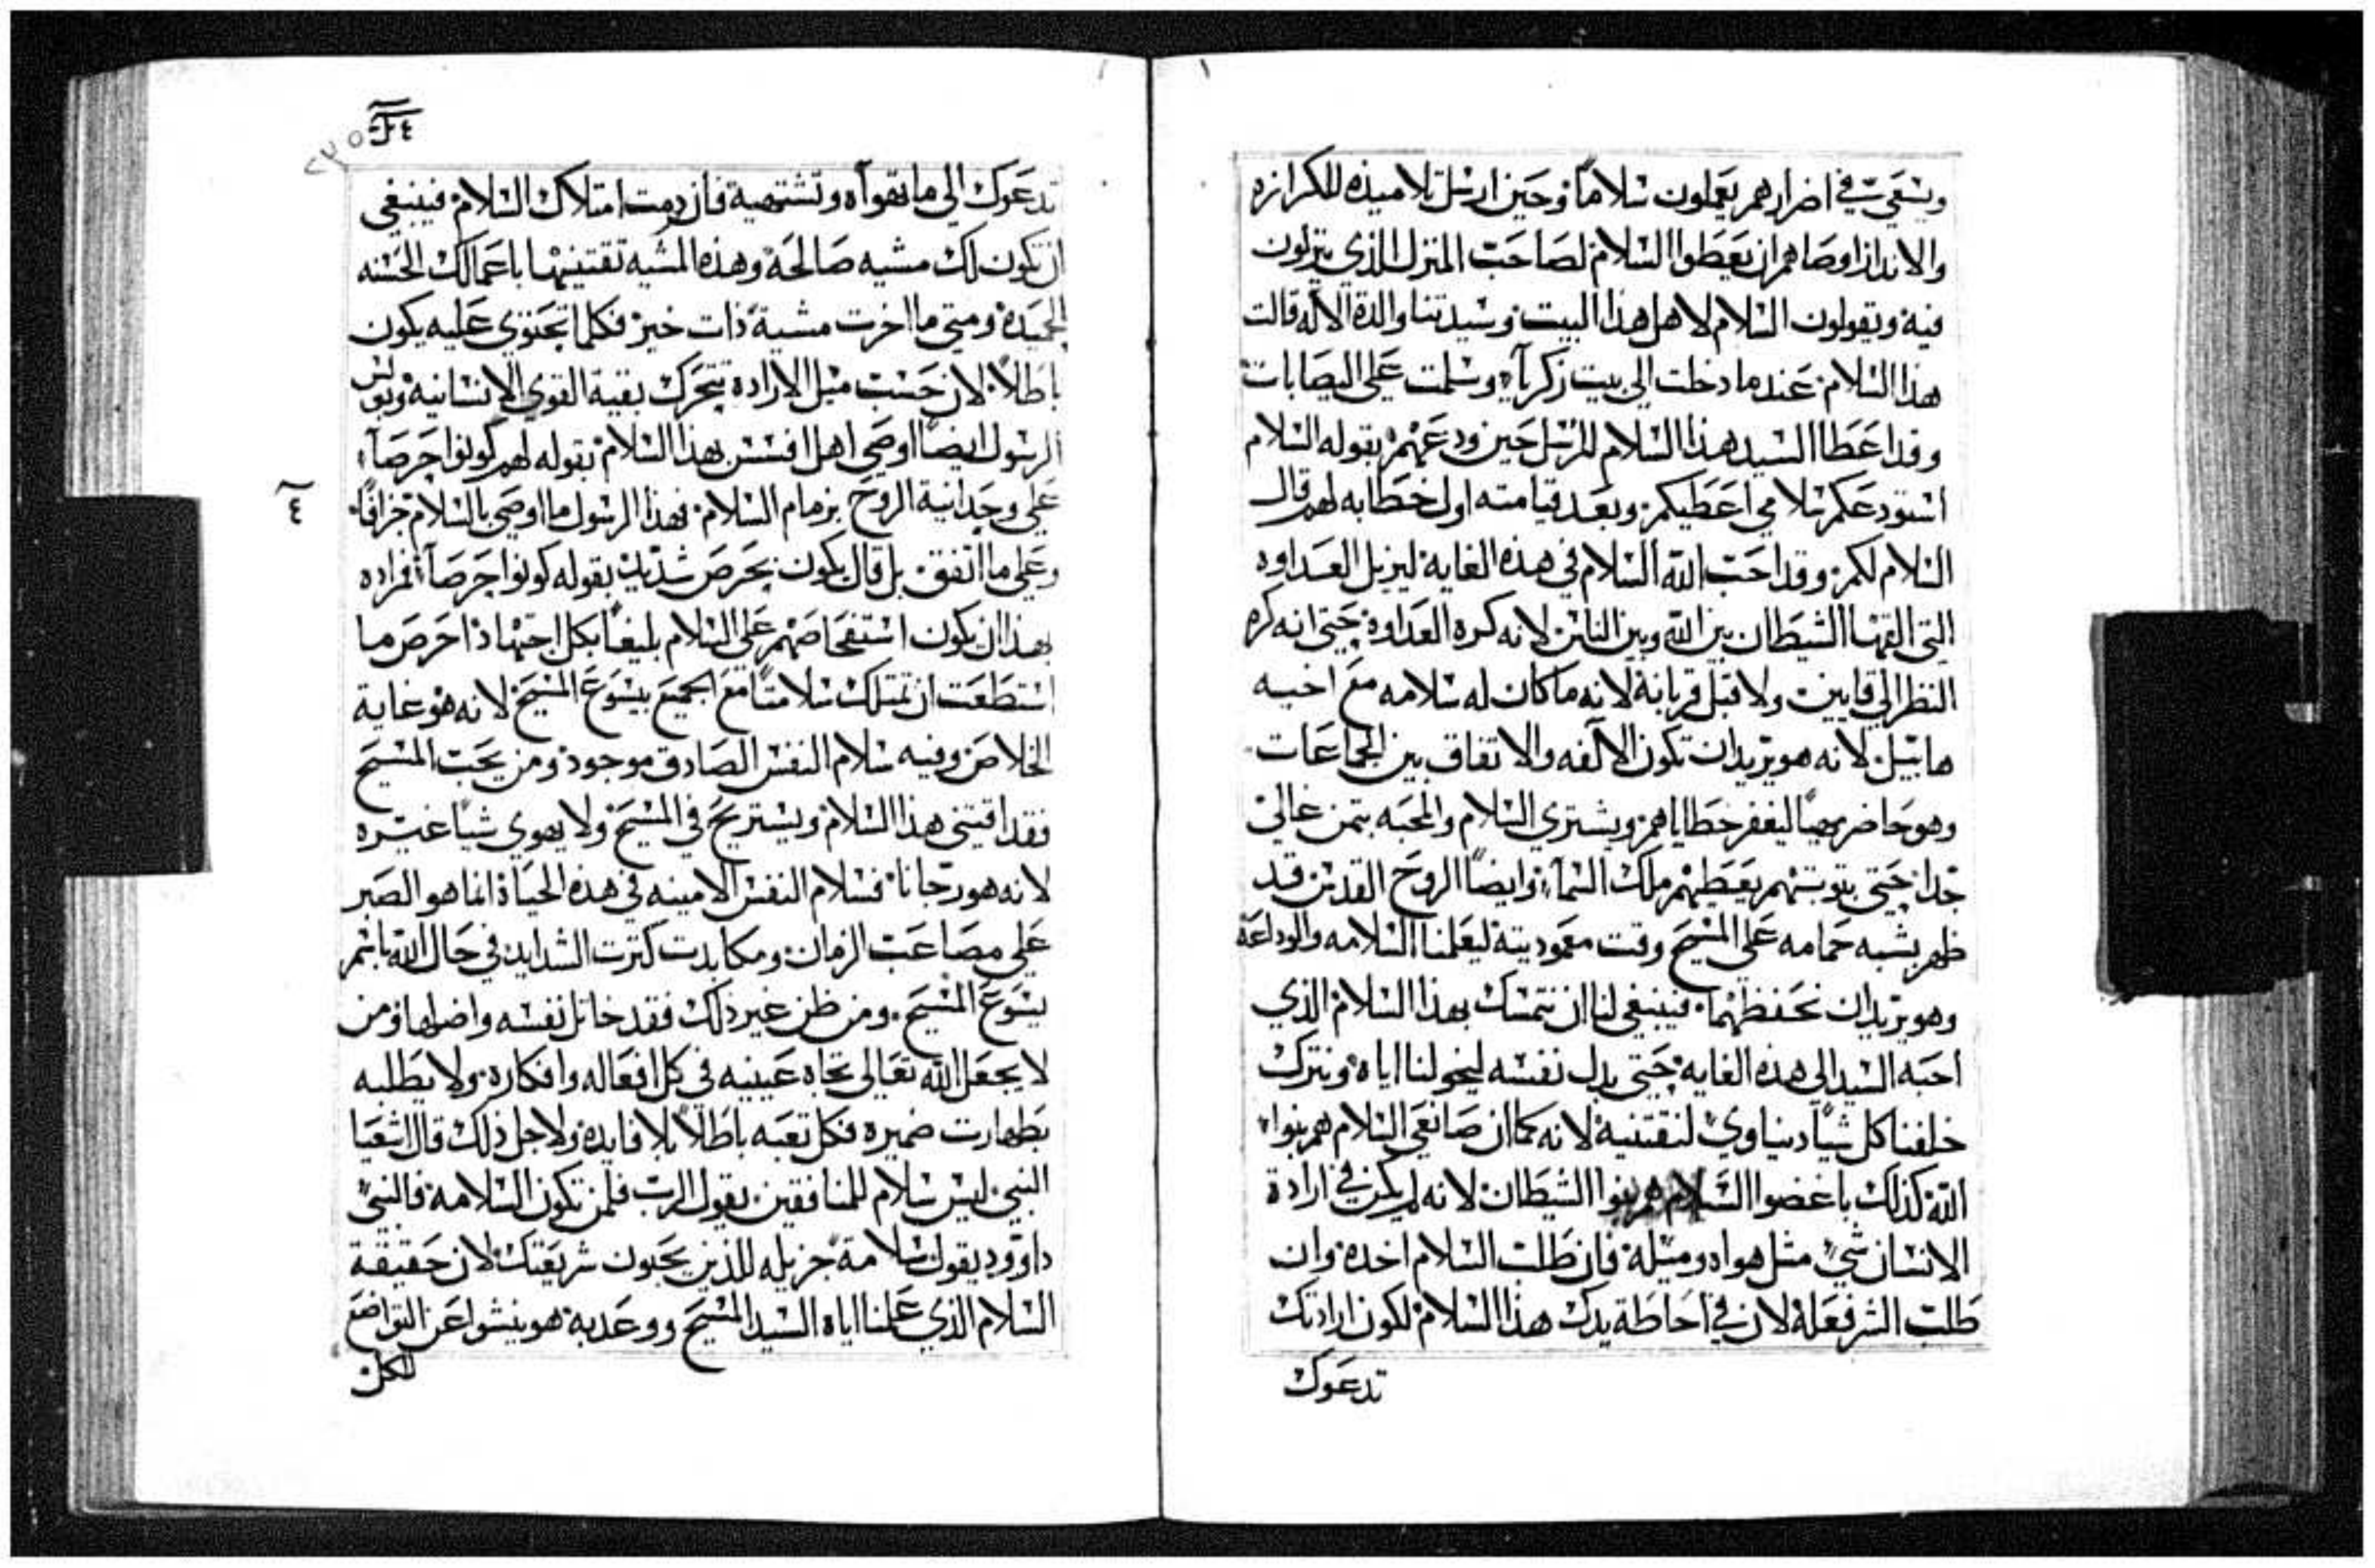 ويسعى في اضرارهم يعملون سلاماً وحين ارسل تلاميذه للكرازه
والانذار اوصاهم ان يعطوا السلام لصاحب المنزل الذي ينزلون
فيه ويقولون السلام لاهل هذا البيت وسيدتنا والدة الاله قالت
هذا السلام عندما دخلت الى بيت زكريآء وسلمت على اليصابات
وقد اعطا السيد هذا السلام للرسل حين ودعهم بقوله السلام
استودعكم سلامي اعطيكم وبعد قيامته اول خطابه لهم قال
السلام لكم وقد احب الله السلام في هذه الغايه ليزيل العداوه
التي القتها الشيطان بين الله وبين الناس لانه كره العداوة حتى انه كره
النظر الى قايين ولا قبل قربانه لانه ماكان له سلامه مع اخيه
هابيل لانه هو يريد ان تكون الآلفه والاتفاق بين الجماعات
وهو حاضر ليغفر خطاياهم ويشتري السلام والمحبه بتمن غالي
جدا حتى بتوبتهم يعطيهم ملك السمآء وايضاً الروح القدس قد
ظهر بشبه حمامه على المسيح وقت معموديته ليعلمنا السلامه والوداعة
وهو يريد ان نحفظهما فينبغي لنا ان نتمسك بهذا السلام الذي
احبه السيد الى هذه الغايه حتى بدل نفسه ليخولنا اياه ونترك
خلفنا كل شياً دنياوي لنقتنيه لانه كما ان صانعي السلام هم بنوا
الله كذلك باغضوا السلام هم بنوا الشيطان لانه لم يكن في ارادة
الانسان شي مثل هواه وميله فان طلب السلام اخده وان
طلب الشر فعله لان في احاطة يدك هذا السلام لكون ارادتك
تدعوك
٢٣٥
تدعوك الى ما تهواه وتشتهية فان رمت امتلاك السلام فينبغي
ان تكون لك مشيه صالحة وهذه المشيه تقتنيها باعمالك الحسنه
الحميدة ومتى ما اخرت مشية ذات خير فكلما تحتوي عليه يكون
باطلاً لان حسب ميل الارادة يتحرك بقية القوى الانسانية وبولس
الرسول ايضاً اوصى اهل افسس بهذا السلام بقوله لهم كونوا حرصآء
على وحدانية الروح بزمام السلام فهذا الرسول ما اوصى بالسلام جزافاً
٤
وعلى ما اتفق بل قال يكون بحرص شديد بقوله كونوا حرصآء فمراده
بهذا ان يكون استفحاصهم على السلام بليغاً بكل اجتهاد احرص ما
استطعت ان تمتلك سلامتاً مع الجميع بيسوع المسيح لانه هو غاية
الخلاص وفيه سلام النفس الصادق موجود ومن يحب المسيح
فقد اقتنى هذا السلام ويستريح في المسيح ولا يهوى شياً غيره
لانه هو رجانا فسلام النفس الامينه في هذه الحياة انما هو الصبر
على مصاعب الزمان ومكابدت كترت الشدايد في حال الله باسم
يسوع المسيح ومن ظن غير دلك فقد خاتل نفسه واضلها ومن
لا يجعل الله تعالى تجاه عينيه في كل افعاله وافكاره ولا يطلبه
بطهارت ضميره فكل تعبه باطلاً بلا فايده ولاجل ذلك قال اشعيا
النبي ليس سلام للمنافقين يقول الرب فلمن تكون السلامة فالنبي
داوود يقول سلامة جزيله للذين يحبون شريعتك لان حقيقة
السلام الذي علمنا اياه السيد المسيح ووعد به هو ينشوا عن التواضع
لكن